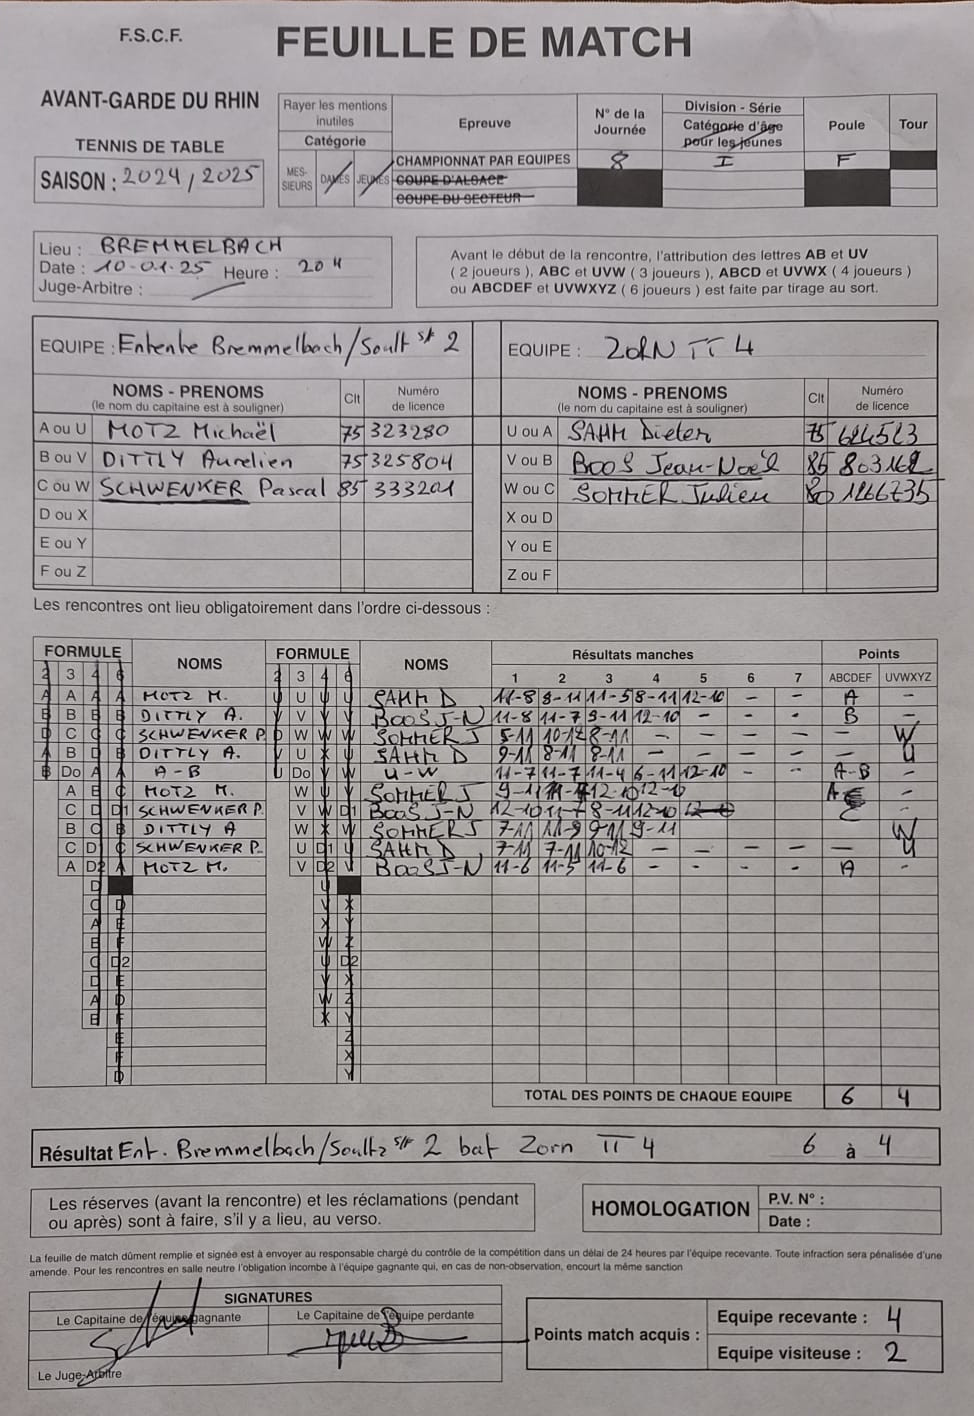 F.S.C.F.
FEUILLE DE MATCH
AVANT-GARDE DU RHIN
TENNIS DE TABLE
SAISON : 2024 / 2025
Rayer les mentions inutiles
Catégorie
MES-SIEURS DAMES JEUNES
Epreuve
CHAMPIONNAT PAR EQUIPES
COUPE D'ALSACE
COUPE DU SECTEUR
N° de la Journée
8
Division - Série
Catégorie d'âge pour les jeunes
I
Poule
F
Tour
Lieu : BREMMELBACH
Date : 10-01-25 Heure : 20 H
Juge-Arbitre :
Avant le début de la rencontre, l'attribution des lettres AB et UV
( 2 joueurs ), ABC et UVW ( 3 joueurs ), ABCD et UVWX ( 4 joueurs )
ou ABCDEF et UVWXYZ ( 6 joueurs ) est faite par tirage au sort.
EQUIPE : Entente Bremmelbach/Soult s/f 2
EQUIPE : ZORN TT 4
NOMS - PRENOMS Clt Numéro
(le nom du capitaine est à souligner) de licence
NOMS - PRENOMS Clt Numéro
(le nom du capitaine est à souligner) de licence
A ou U MOTZ Michaël 75 323280
U ou A SAHM Dieter 75
B ou V DITTLY Aurelien 75 325804
V ou B BOOS Jean-Noël 85
C ou W SCHWENKER Pascal 85 333201
W ou C SOMMER Julien 80
D ou X
X ou D
E ou Y
Y ou E
F ou Z
Z ou F
Les rencontres ont lieu obligatoirement dans l'ordre ci-dessous :
FORMULE NOMS FORMULE NOMS Résultats manches Points
2 3 4 6 2 3 4 6 1 2 3 4 5 6 7 ABCDEF UVWXYZ
A A A A MOTZ M. U U U U SAHM D 11-8 8-11 11-5 8-11 12-10 - - A -
B B B B DITTLY A. V V V V BOOS J-N 11-8 11-7 9-11 12-10 - - - B -
D C C C SCHWENKER P D W W W SOMMER J 5-11 10-12 8-11 - - - - - W
A B D B DITTLY A. V U X U SAHM D 9-11 8-11 8-11 - - - - - U
B Do A A A-B U Do V W U-W 11-7 11-7 11-4 6-11 12-10 - - A-B -
A E C MOTZ M. W U V SOMMER J 9-11 12-10 12-10 A -
C D D1 SCHWENKER P. V W D1 BOOS J-N 12-10 11-7 8-11 12-10 C -
B C B DITTLY A W X W SOMMER J 7-11 11-9 9-11 9-11 W
C D C SCHWENKER P. U D1 U SAHM D 7-11 7-11 10-12 - - - - - U
A D2 A MOTZ M. V D2 V BOOS J-N 11-6 11-5 11-6 - - - - A -
D U
C D V X
A E X Y
B F W Z
C D2 U D2
D E V X
A D W Z
B F X Y
E Z
F X
D Y
TOTAL DES POINTS DE CHAQUE EQUIPE 6 4
Résultat Ent. Bremmelbach/Soultz s/f 2 bat Zorn TT 4 6 à 4
Les réserves (avant la rencontre) et les réclamations (pendant
ou après) sont à faire, s'il y a lieu, au verso.
HOMOLOGATION
P.V. N° :
Date :
La feuille de match dûment remplie et signée est à envoyer au responsable chargé du contrôle de la compétition dans un délai de 24 heures par l'équipe recevante. Toute infraction sera pénalisée d'une
amende. Pour les rencontres en salle neutre l'obligation incombe à l'équipe gagnante qui, en cas de non-observation, encourt la même sanction
SIGNATURES
Le Capitaine de l'équipe gagnante Le Capitaine de l'équipe perdante
Le Juge-Arbitre
Points match acquis :
Equipe recevante : 4
Equipe visiteuse : 2